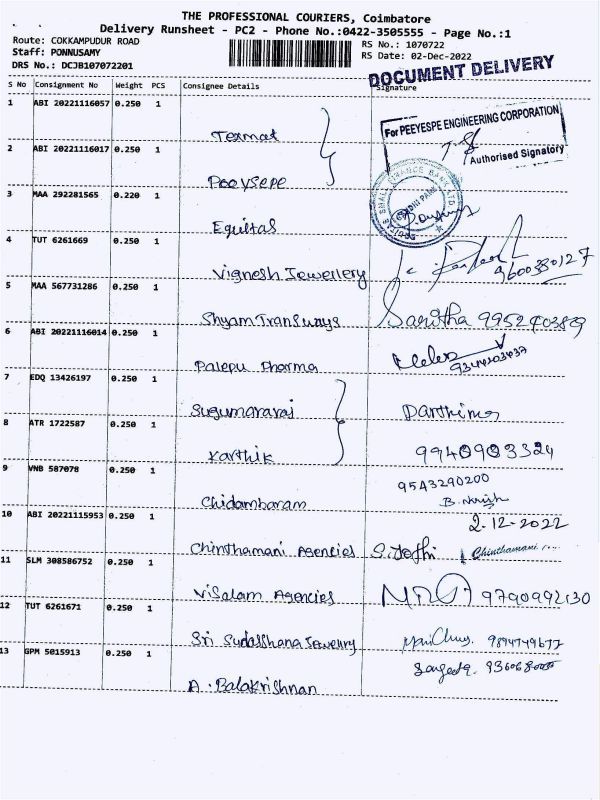 THE PROFESSIONAL COURIERS, Coimbatore
Delivery Runsheet - PC2 - Phone No.:0422-3505555 - Page No.:1
Route: COKKAMPUDUR ROAD
RS No.: 1070722
Staff: PONNUSAMY
RS Date: 02-Dec-2022
DRS No.: DCJB107072201
DOCUMENT DELIVERY
S No Consignment No Weight PCS Consignee Details Signature
1 ABI 20221116057 0.250 1 Texmat
For PEEYESPE ENGINEERING CORPORATION
Authorised Signatory
2 ABI 20221116017 0.250 1 Peeysepe
3 MAA 292281565 0.220 1 Equitas
4 TUT 6261669 0.250 1 Vignesh Jewellery 9600380127
5 MAA 567731286 0.250 1 Shyam Transways Saritha
6 ABI 20221116014 0.250 1 Palepu Pharma
7 EDQ 13426197 0.250 1 Sugumararaj
8 ATR 1722587 0.250 1 Karthik 9940903324
9 VNB 587078 0.250 1 Chidambaram 9543290200
10 ABI 20221115953 0.250 1 Chinthamani Agencies 2-12-2022
Chinthamani
11 SLM 308586752 0.250 1 Visalam Agencies 9790992130
12 TUT 6261671 0.250 1 Sri Sudarshana Jewellry
13 GPM 5015913 0.250 1 A. Balakrishnan